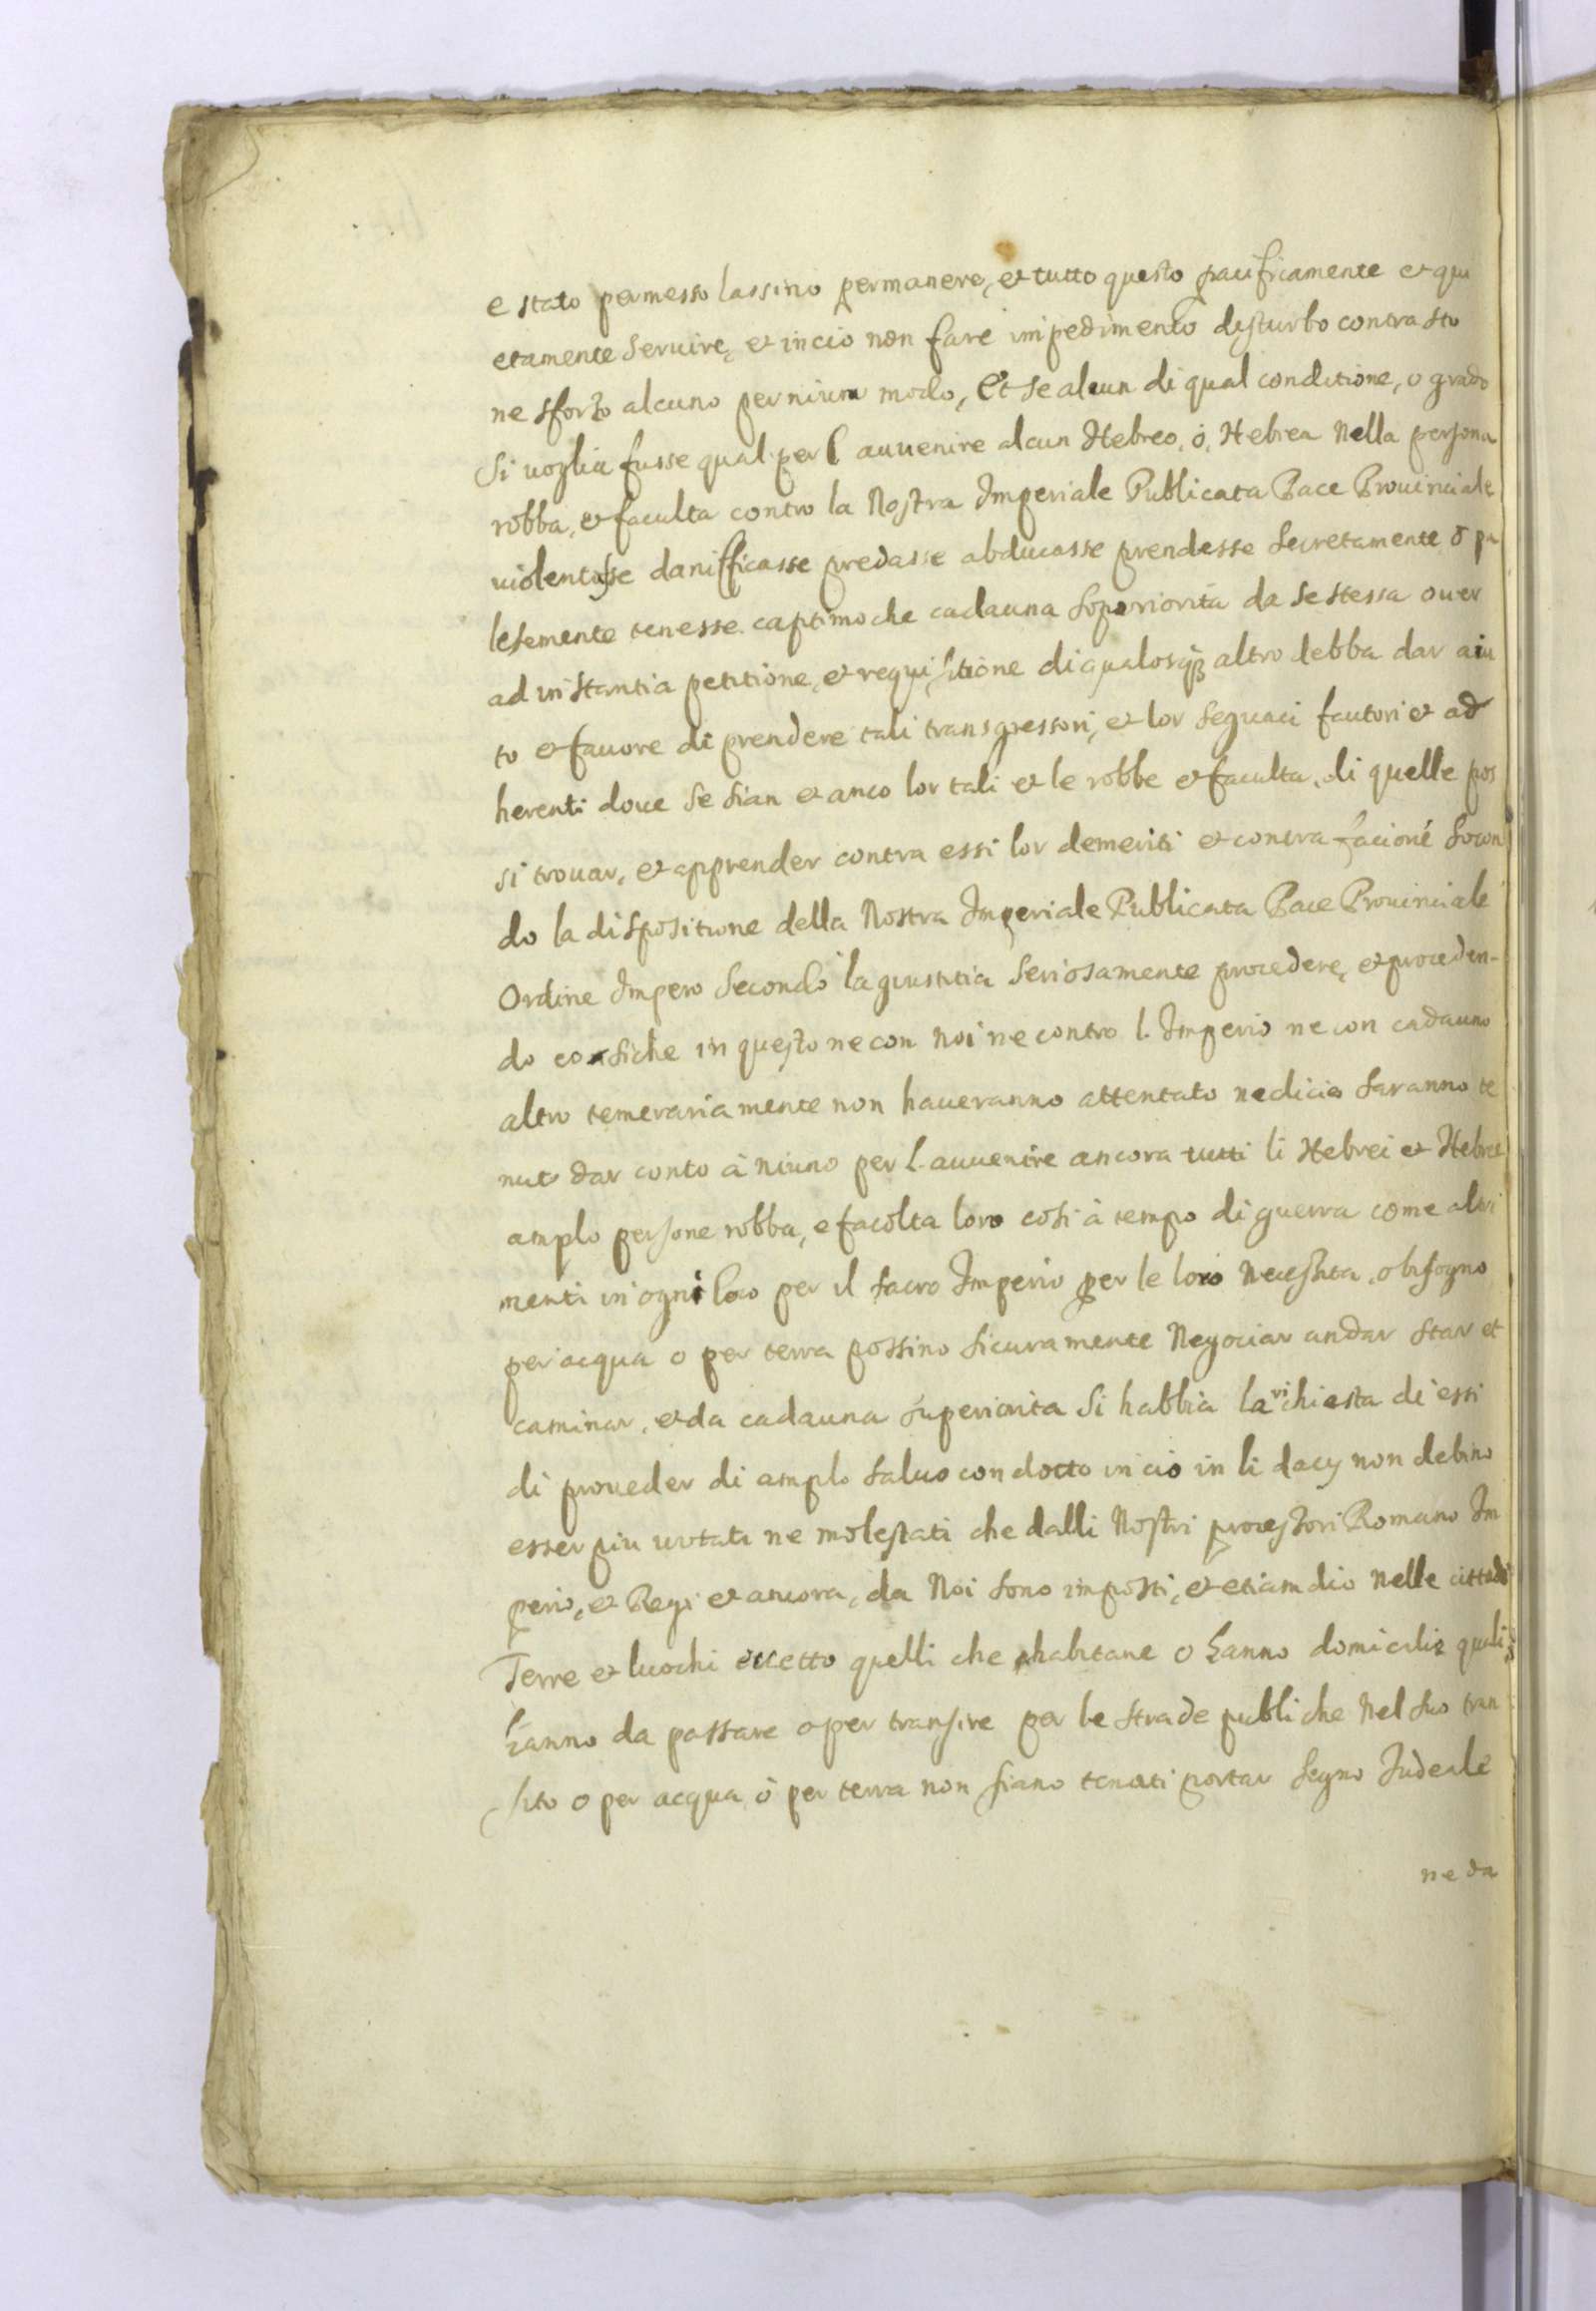 e stato permesso lassino permanere, et tutto questo pacificamente et qui
etamente servire, et in cio non fare impedimento desturbo contrasto
ne sforzo alcuno per niun modo, Et se alcun di qual conditione, o grado
si voglia fusse qual per l auuenire alcun Hebreo, ó, Hebrea Nella persona
robba, et faculta contro la Nostra Imperiale Publicata Pace Prouinciale
uiolentasse danifficasse predasse abducasse prendesse secretamente o pa
lesemente tenesse captimo che cadauna soperiorità da se stessa ouer
ad instantia petitione, et requisitione di qualosq3 altro debba dar aiu
to et fauore di prendere tali transgressori, et lor seguaci fautori et ad
herenti doue se sian et anco lor tali et le robbe et faculta, di quelle pos
si trouar, et apprender contra essi lor demeriti et contra facioné secon
do la dispositione della Nostra Imperiale Publicata Pace Prouinciale
Ordine Impero secondo la giustitia seriosamente procedere, et proceden-
do cosi che in questo ne con Noi ne contro l. Imperio ne con cadauno
altro temerariamente non haueranno attentato ne di cio saranno te
nuti dar conto à niuno per l. auuenire ancora tutti li Hebrei et Hebree
amplo persone robba, e facolta loro cosi à tempo di guerra come altri
menti in ogni loco per il sacro Imperio per le loro Necessita, o bisogno
per acqua o per terra possino sicuramente Negociar andar star et
caminar, et da cadauna superiorita si habbia la richiesta di essi
di proueder di amplo saluo condotto in cio in li dacy non debino
esser piu urtati ne molestati che dalli Nostri processori Romano Im
perio, et Regi et ancora, da Noi sono imposti, et etiamdio nelle cittadi
Terre et luochi eccetto quelli che habitane o hanno domicilio quali
hanno da passare o per transire per le strade publiche Nel suo tran
sito o per acqua ò per terra non siano tenuti portar segno Judeale
ne da